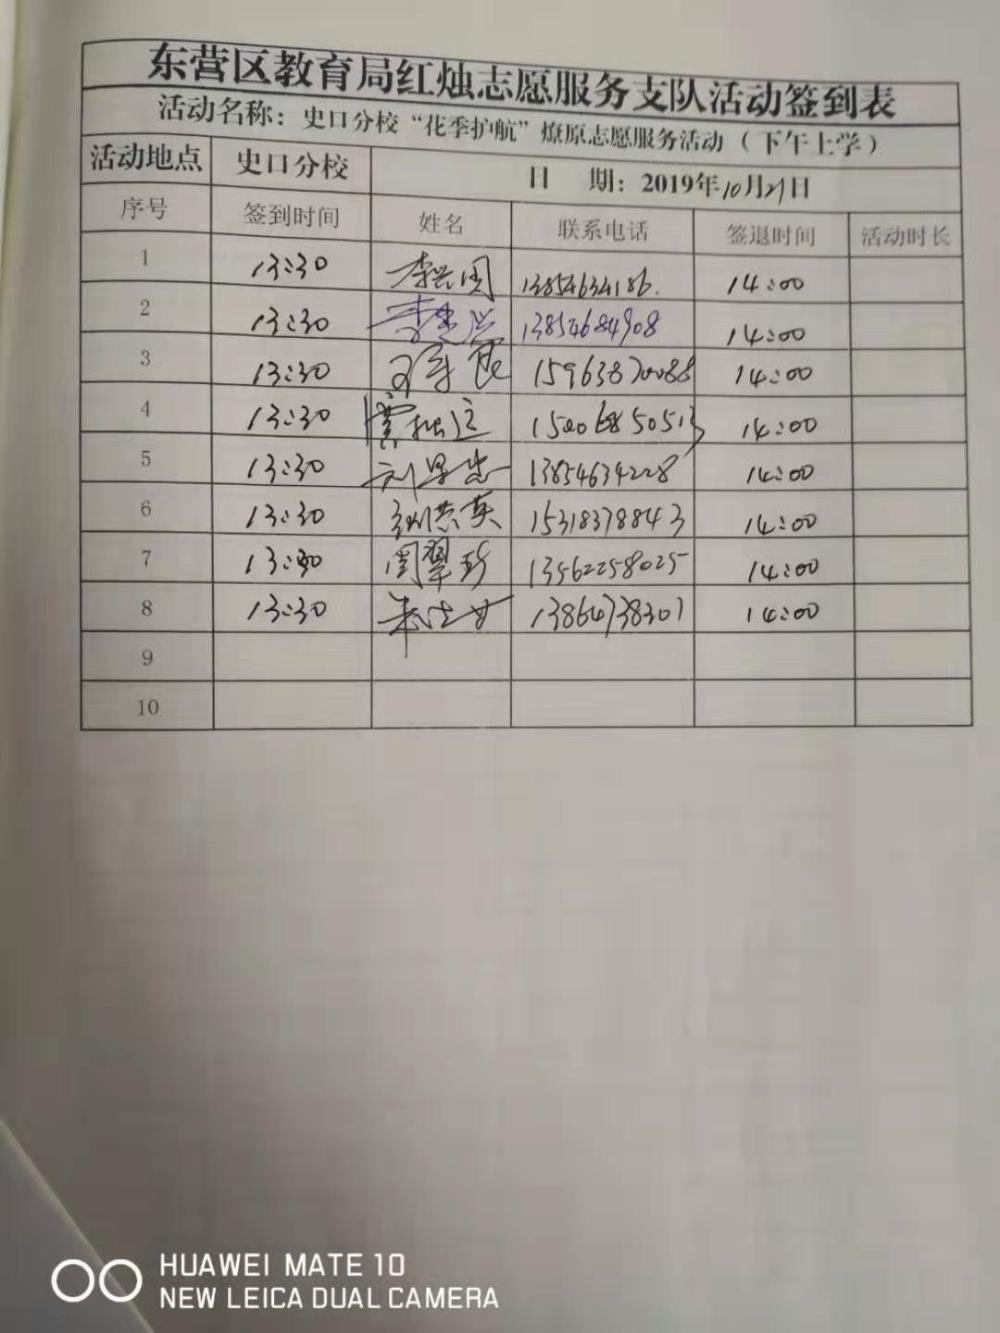 东营区教育局红烛志愿服务支队活动签到表
活动名称：史口分校“花季护航”燎原志愿服务活动（下午上学）
活动地点 史口分校 日 期：2019年10月21日
序号 签到时间 姓名 联系电话 签退时间 活动时长
1 13:30 李兴国 13854634186. 14:00
2 13:30 13854684908 14:00
3 13:30 15963870088 14:00
4 13:30 14:00
5 13:30 13854634228 14:00
6 13:30 刘洪英 15318378843 14:00
7 13:30 闫翠珍 13562258025 14:00
8 13:30 13864738307 14:00
9
10
HUAWEI MATE 10
NEW LEICA DUAL CAMERA